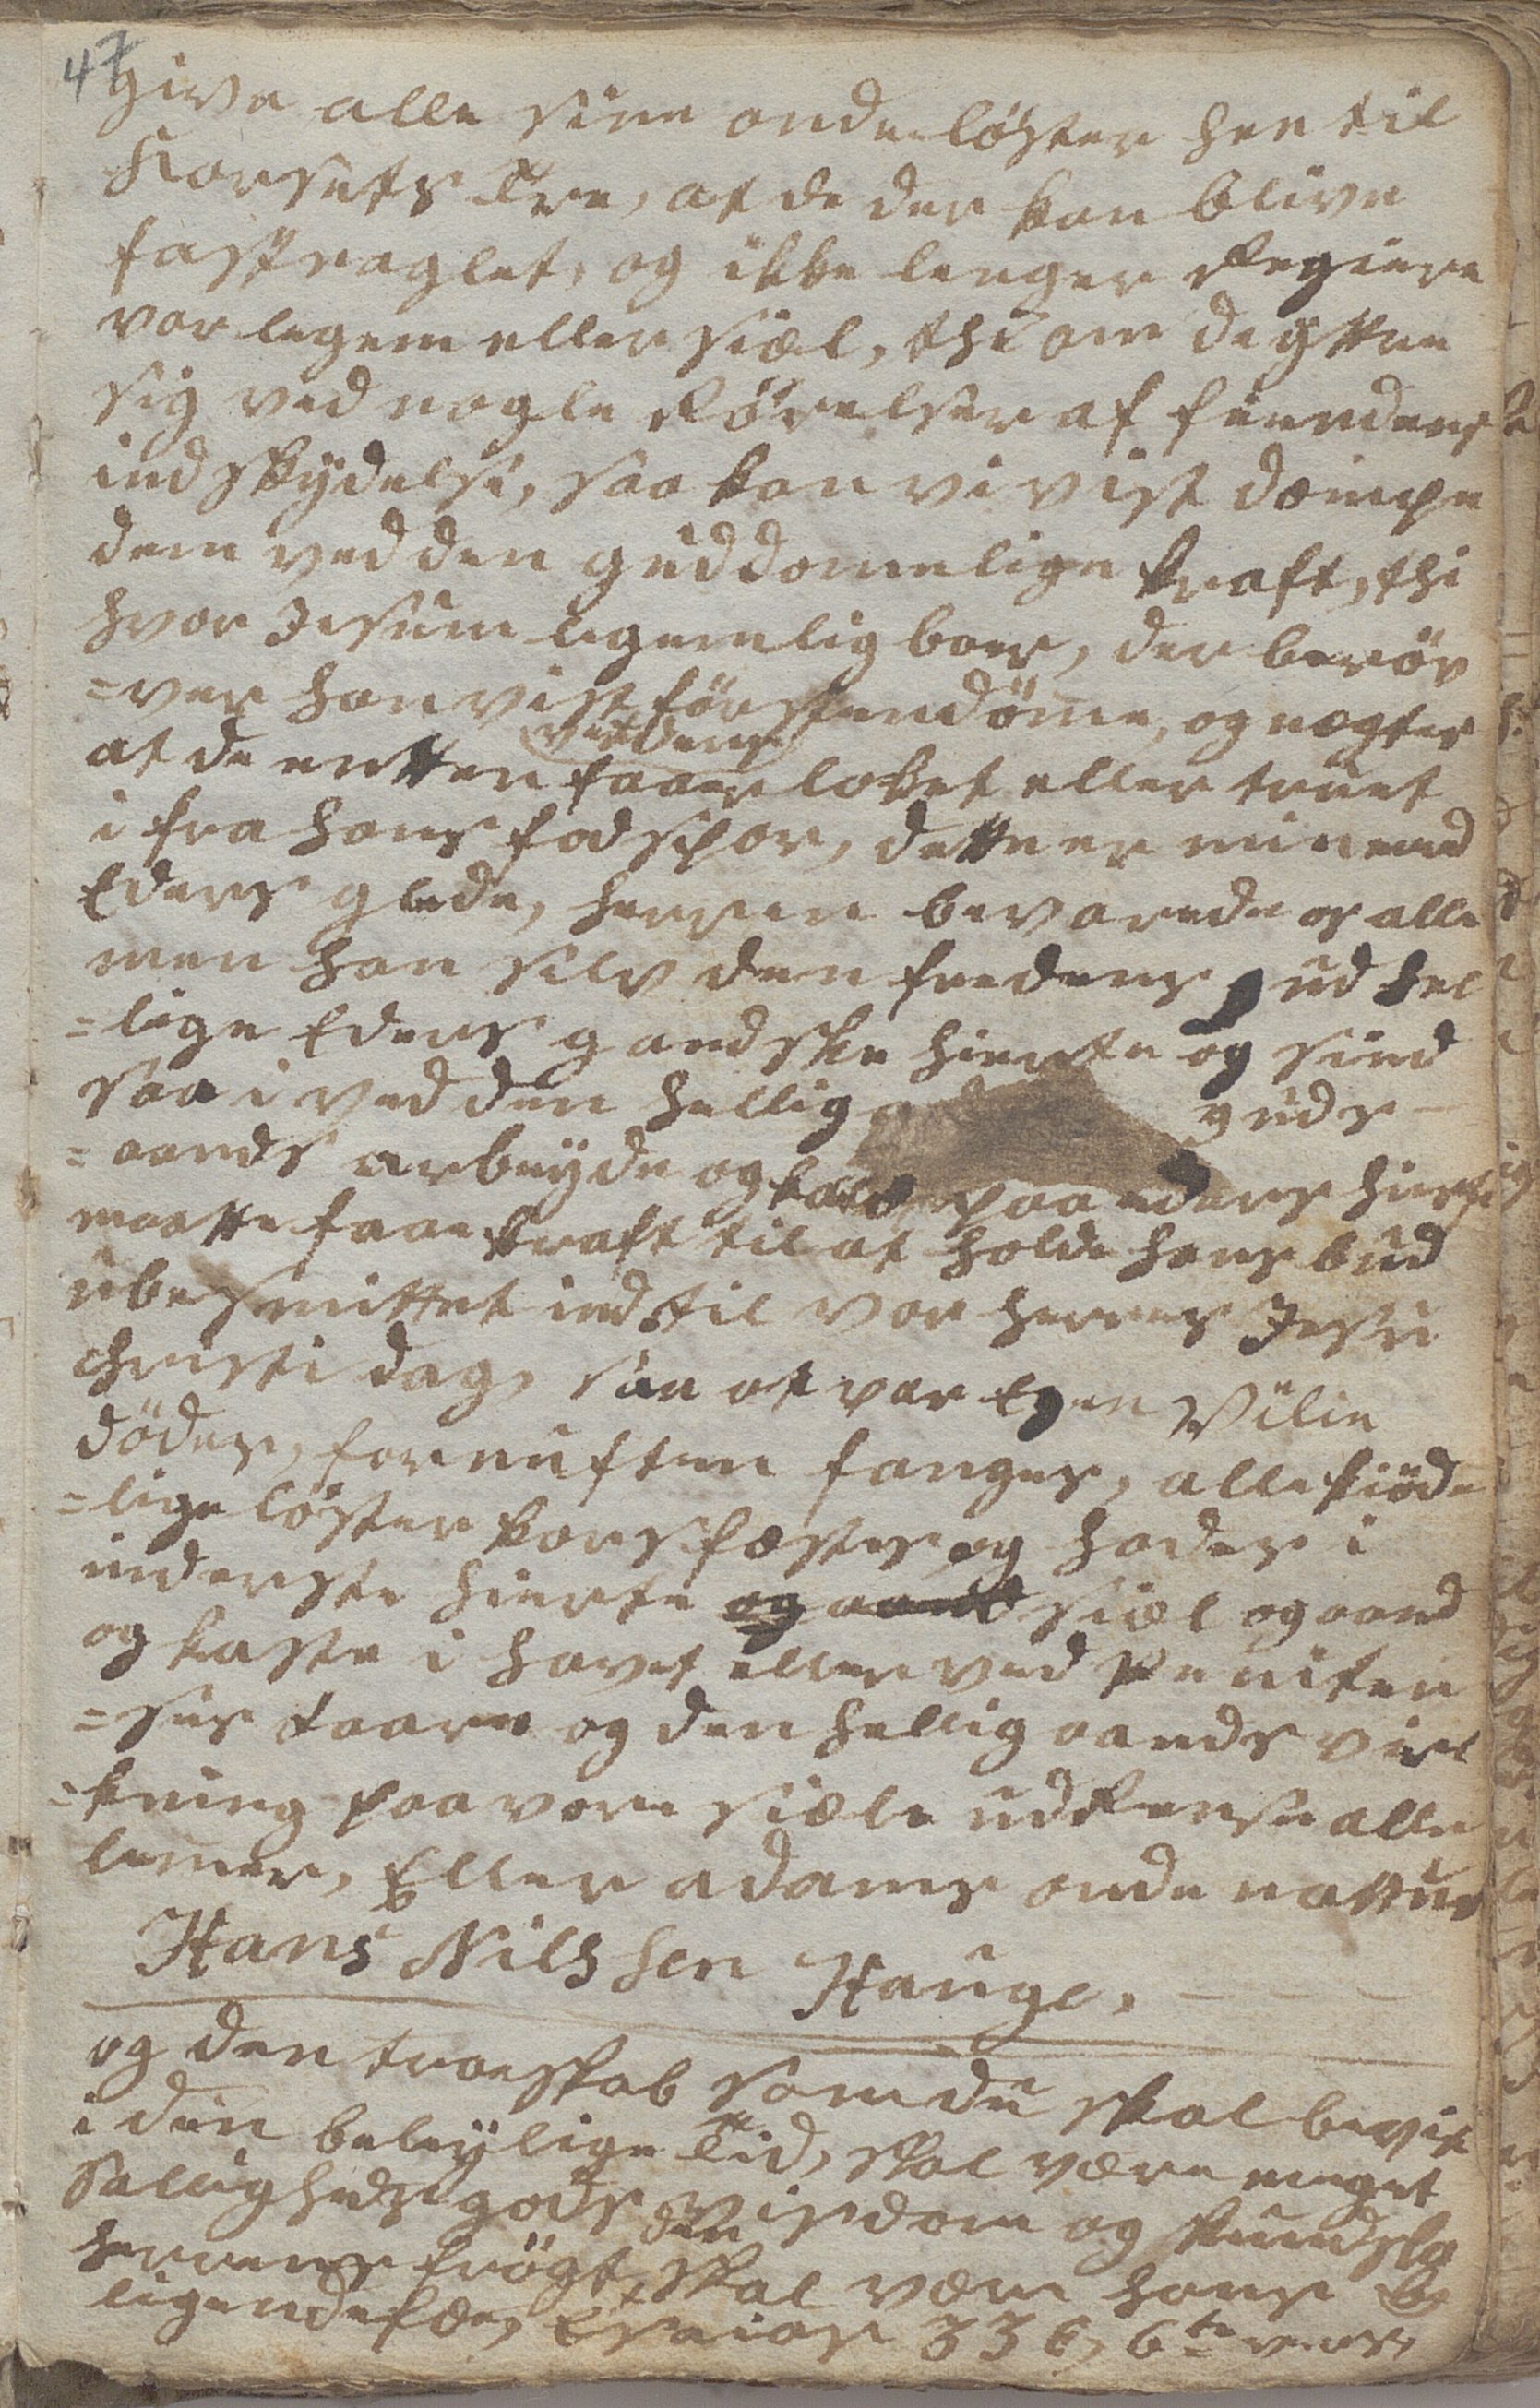 47
give alle sine onde löster hen til
Korsets Tre, at de der kan blive
fastnaglet, og ikke lenger Regiere
vor legem eller siæl, thi om de yttre
sig ved nogle Rörelser af fiendens
indskÿdelse, saa kan vi vist dæmpe
dem ved den guddommelige kraft, thi
hvor Jesum legemlig boer, der berö
=ver han vist förstendömme, og negter
verdens
at de entten faaer loket eller truet
i fra hans fodspor, dette er min and
Eders glede, herren bevarede os alle
men han selv den fredens gud hel
=lige Eders gandske hierte og sind
saa i ved den hellig guds
=aands arbeÿde og kald paa eders hierte
maatte faae kraft til at holde hans bud
ubesmittet ind til vor herres Jesu
Christi dag, saa at vor Egen Vilie
dödes, fornuften fanges, alle kiöde
=lige löster korsfæstes og hades i
inderste hierte og aand siæl og aand
og kaste i havet eller ved Peniten
=ses taare og den hellig aands vir
=kning paa vore siæle udRense alle
lemer, Eller adams onde nattur
Hans Nilssen Hauge.
og den troeskab som du skal bevise
i din beleÿlige Tid, skal være meget
Sallighedz gods Visdom og kundska
den
herrens frögt, skal være hans
liggendefæ, Esaias 33 C, 6te vers,